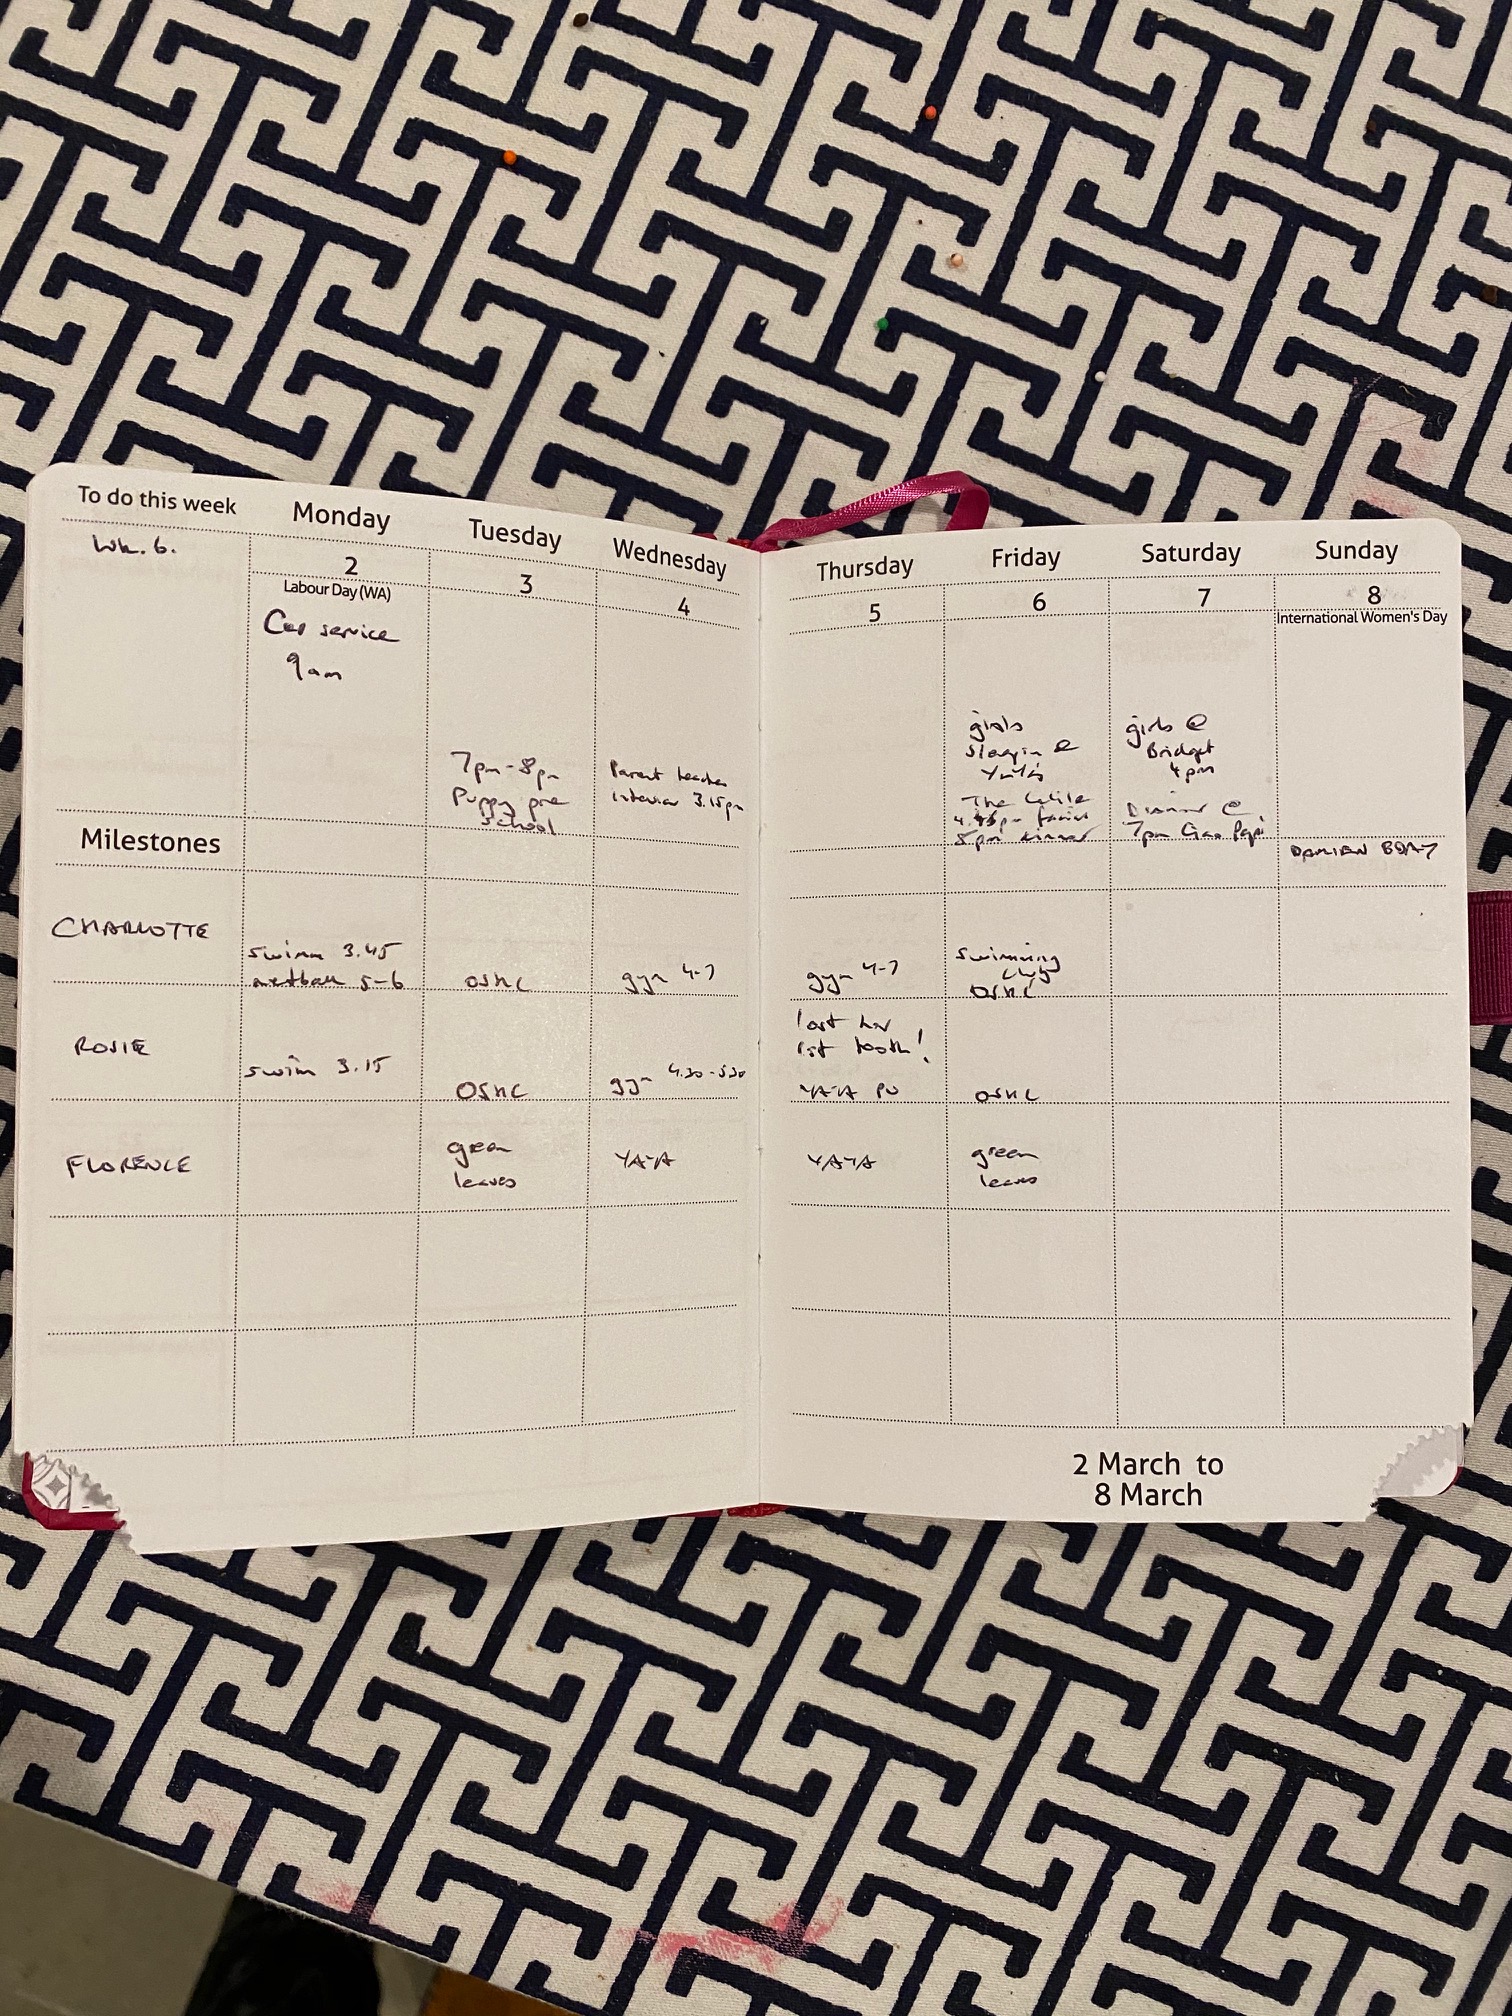 To do this week
Monday
Tuesday
Wednesday
Thursday
Friday
Saturday
Sunday
Wk. 6.
2
3
4
5
6
7
8
Labour Day (WA)
International Women's Day
Car service
9am
7pm-8pm
Puppy pre
school
Parent teacher
interview 3.15pm
girls
sleepin @
YaYa's
The
4.45pm
8pm dinner
girls @
Bridget
4pm
Dinner @
7pm Ciao Papi
DAMIEN BDAY
Milestones
CHARLOTTE
swim 3.45
netball 5-6
OSHC
gym 4-7
gym 4-7
swimming
club
OSHC
ROSIE
swim 3.15
OSHC
gym 4.30-5.30
lost her
1st tooth!
YAYA PU
OSHC
FLORENCE
green
leaves
YAYA
YAYA
green
leaves
2 March to
8 March